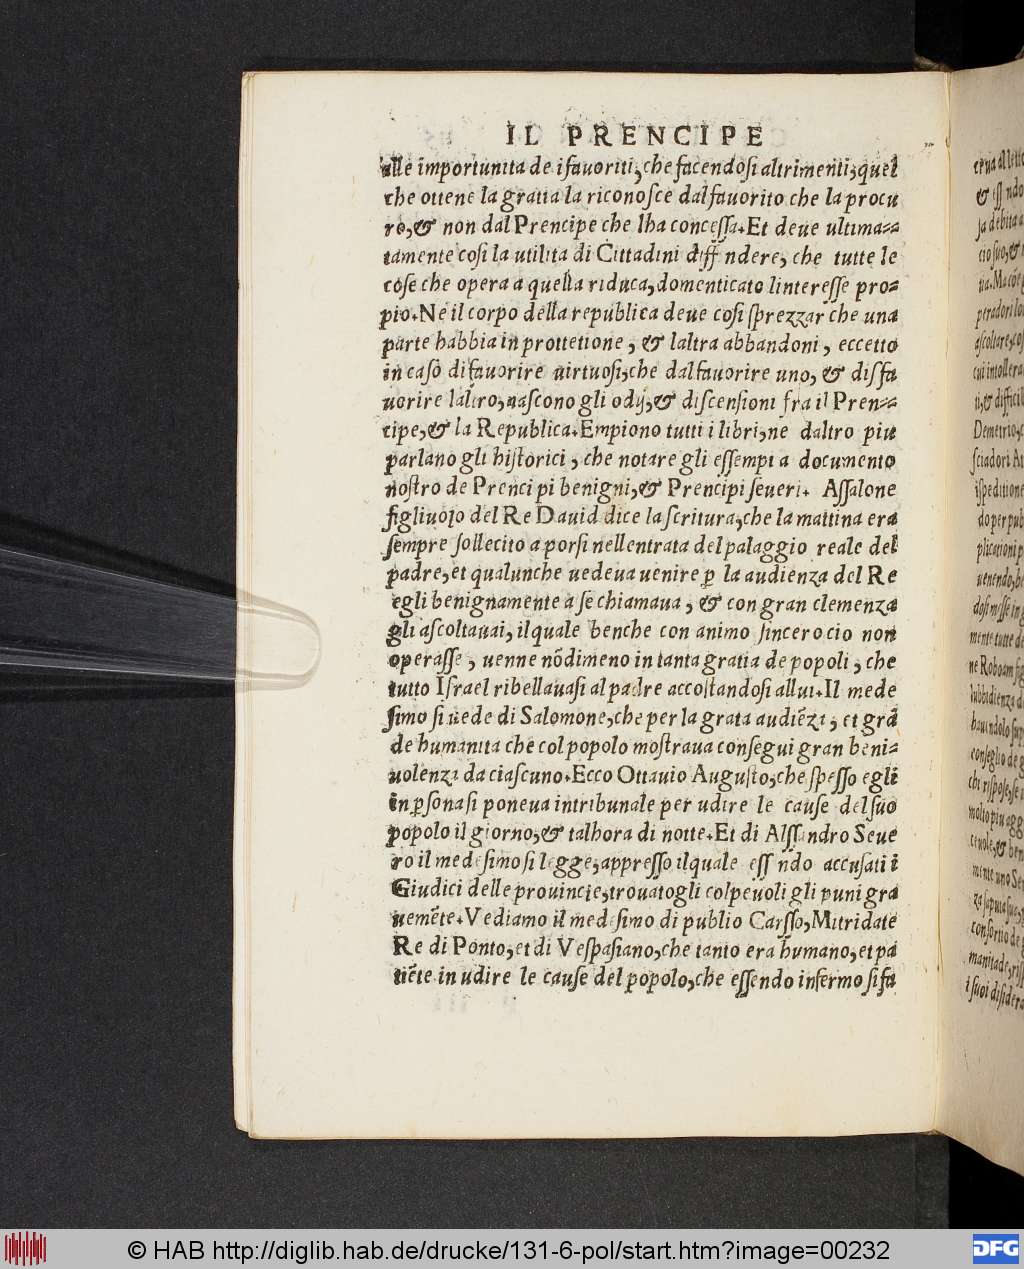 IL PRENCIPE
alle importunita de i fauoriti, che facendosi altrimenti, quel
che ottene la gratia la riconosce dal fauorito che la procu
ro, & non dal Prencipe che lha concessa. Et deue ultima-
tamente cosi la utilita di Cittadini diff ndere, che tutte le
cose che opera a quella riduca, domenticato linteresse pro-
pio. Ne il corpo della republica deue cosi sprezzar che una
parte habbia in prottetione, & laltra abbandoni, eccetto
in caso di fauorire uirtuosi, che dal fauorire uno, & disfa
uorire laltro, nascono gli odij, & discensioni fra il Pren-
cipe, & la Republica. Empiono tutti i libri, ne daltro piu
parlano gli historici, che notare gli essempi a documento
nostro de Prencipi benigni, & Prencipi seueri. Assalone
figliuolo del Re Dauid dice la scritura, che la mattina era
sempre sollecito a porsi nellentrata del palaggio reale del
padre, et qualunche uedeua uenire ꝑ la audienza del Re
egli benignamente a se chiamaua, & con gran clemenza
gli ascoltauai, il quale benche con animo sincero cio non
operasse, uenne nōdimeno in tanta gratia de popoli, che
tutto Israel ribellauasi al padre accostandosi allui. Il mede
simo si uede di Salomone, che per la grata audiēza, et grā
de humanita che col popolo mostraua consegui gran beni-
uolenza da ciascuno. Ecco Ottauio Augusto, che spesso egli
in ꝑsona si poneua in tribunale per udire le cause del suo
popolo il giorno, & talhora di notte. Et di Alssandro Seue
ro il medesimo si legge, appresso il quale ess ndo accusati i
Giudici delle prouincie, trouatogli colpeuoli gli puni gra
uemēte. Vediamo il medesimo di publio Carsso, Mitridate
Re di Ponto, et di Vespasiano, che tanto era humano, et pa
tiēte in udire le cause del popolo, che essendo infermo si fa
© HAB http://diglib.hab.de/drucke/131-6-pol/start.htm?image=00232
DFG